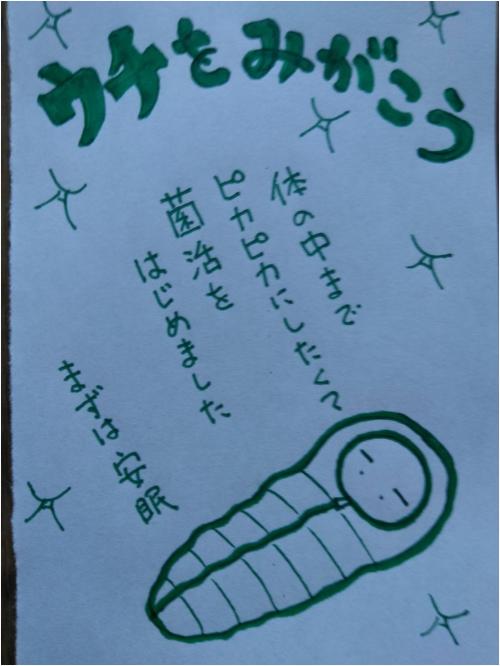 ウチをみがこう
体の中まで
ピカピカにしたくて
菌活を
はじめました
まずは安眠